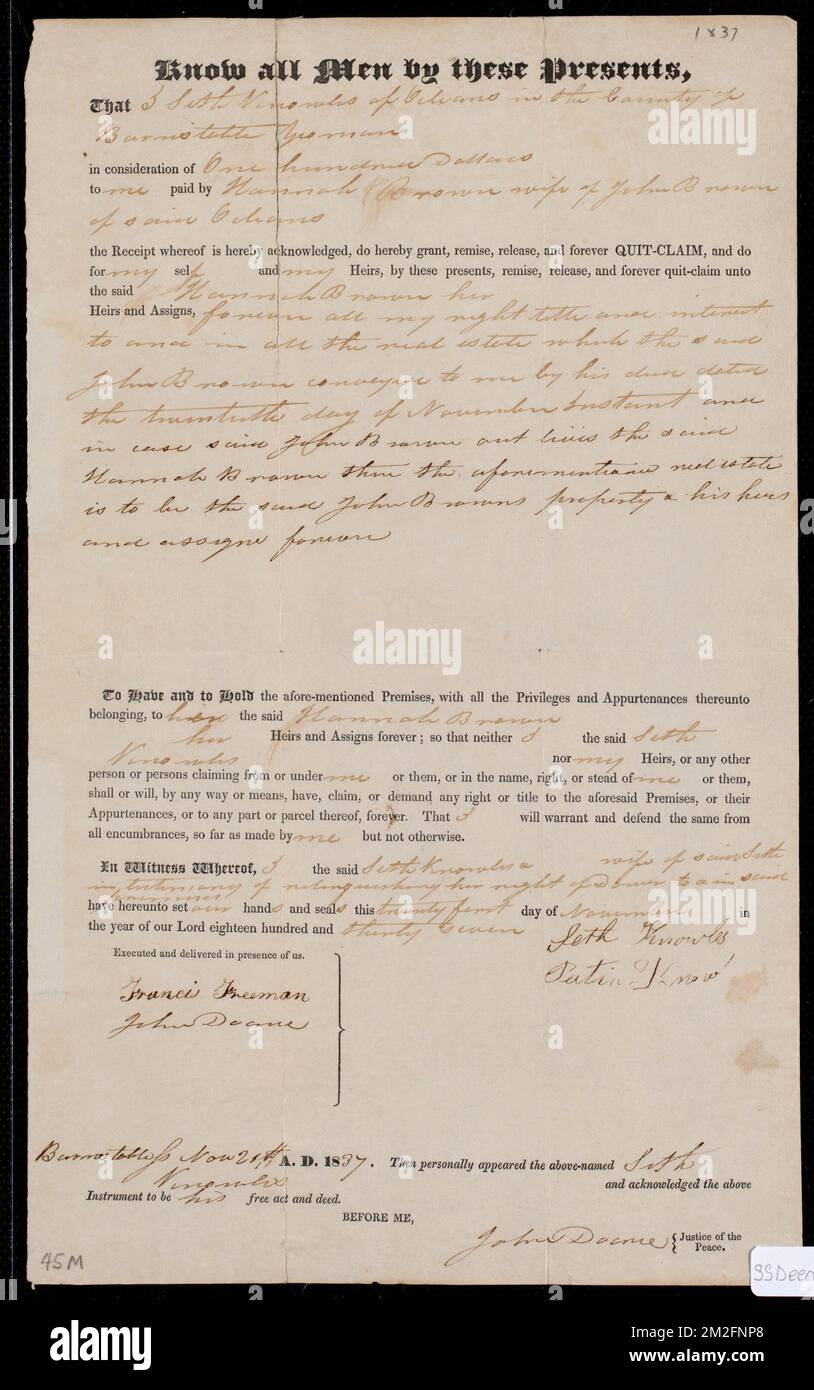 1837
Know all Men by these Presents,
That I Seth Knowles of Orleans in the County of
Barnstable Yeoman
in consideration of One hundred Dollars
to me paid by Hannah Brown wife of John Brown
of said Orleans
the Receipt whereof is hereby acknowledged, do hereby grant, remise, release, and forever QUIT-CLAIM, and do
for my self and my Heirs, by these presents, remise, release, and forever quit-claim unto
the said Hannah Brown her
Heirs and Assigns, forever all my right title and interest
to and in all the real estate which the said
John Brown conveyed to me by his deed dated
the twentieth day of November Instant and
in case said John Brown out lives the said
Hannah Brown then the aforementiaie real estate
is to be the said John Browns property & his heirs
and assigns forever
To Have and to Hold the afore-mentioned Premises, with all the Privileges and Appurtenances thereunto
belonging, to her the said Hannah Brown
her Heirs and Assigns forever; so that neither I the said Seth
Knowles nor my Heirs, or any other
person or persons claiming from or under me or them, or in the name, right, or stead of me or them,
shall or will, by any way or means, have, claim, or demand any right or title to the aforesaid Premises, or their
Appurtenances, or to any part or parcel thereof, forever. That I will warrant and defend the same from
all encumbrances, so far as made by me but not otherwise.
In Witness Whereof, I the said Seth Knowles & wife of said Seth
in testimony of relinquishing her right of Dower to & in said
premises
have hereunto set our hands and seals this twenty first day of November in
the year of our Lord eighteen hundred and thirty Seven
Seth Knowles
Executed and delivered in presence of us.
Know
Francis Freeman
John Doane
Barnstable ss Nov 21st A. D. 1837. Then personally appeared the above-named Seth
Knowles and acknowledged the above
Instrument to be his free act and deed.
BEFORE ME,
John Doane { Justice of the Peace.
45M
SSDeen
alamy
Image ID: 2M2FNP8
www.alamy.com